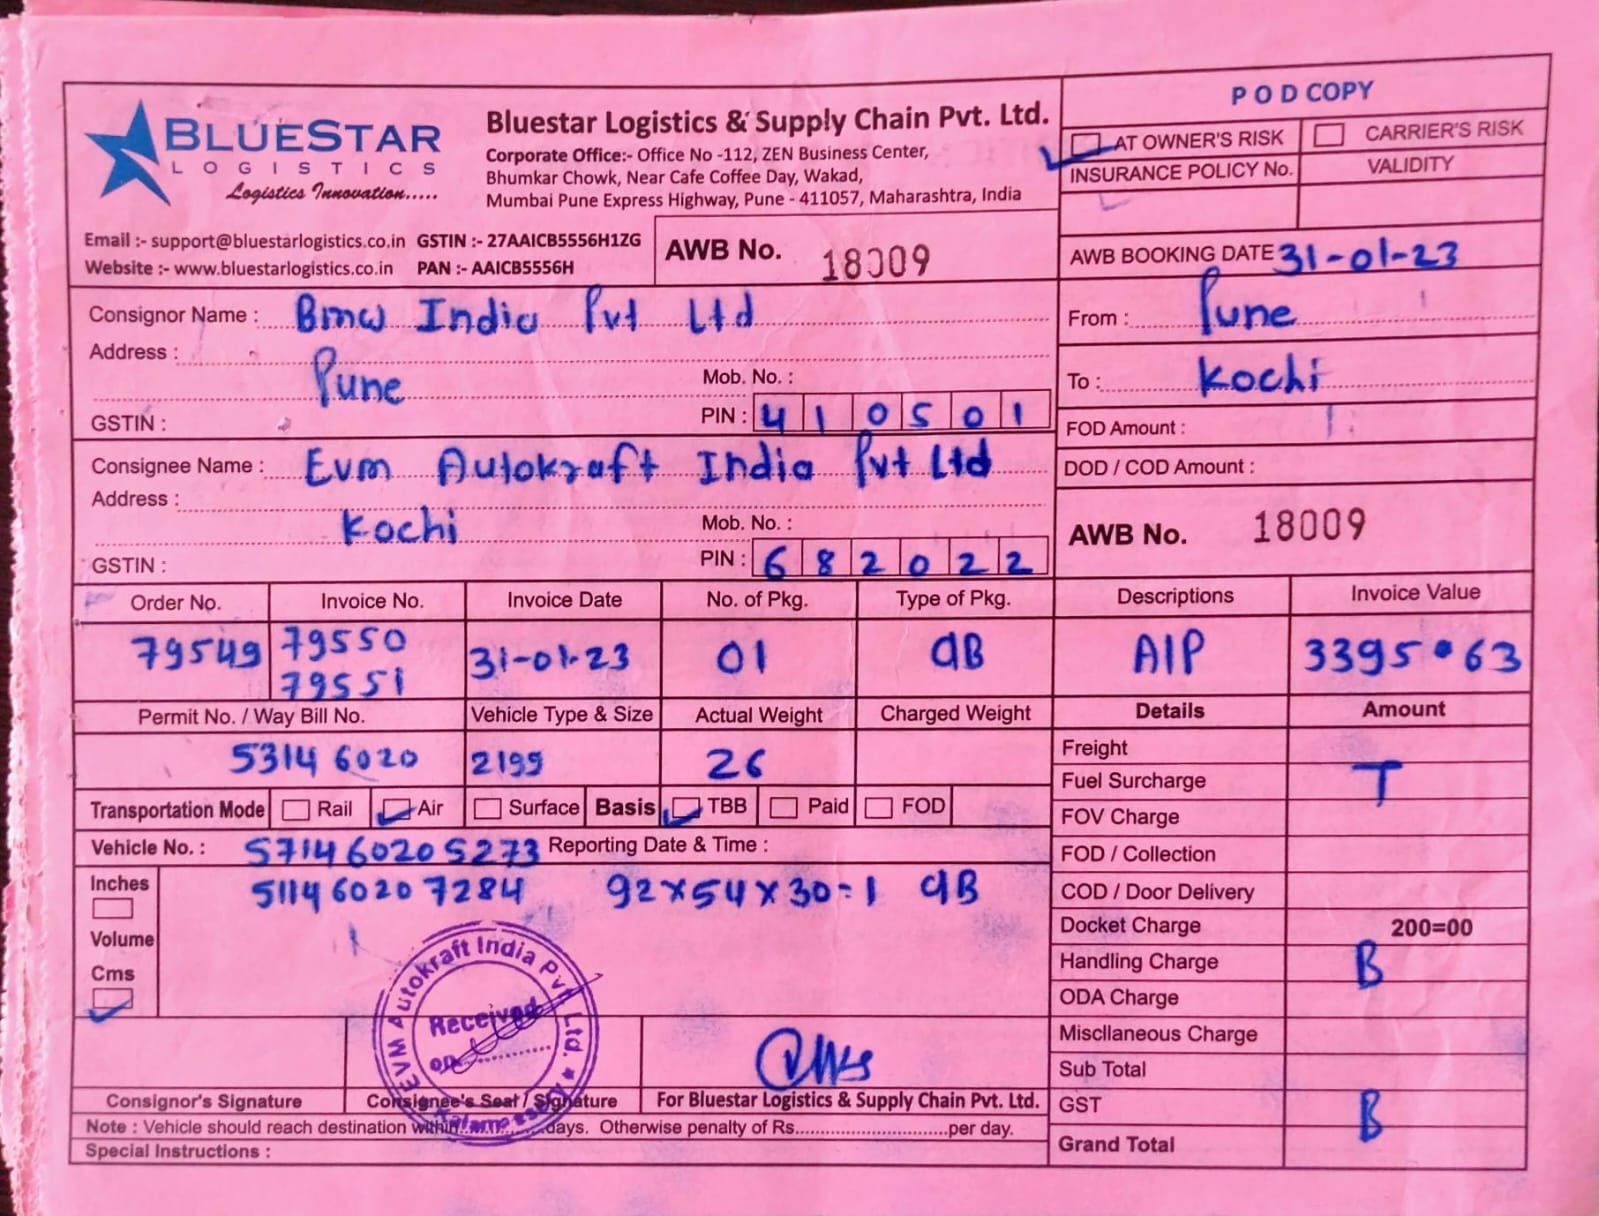 BLUESTAR
LOGISTICS
Logistics Innovation.....
Bluestar Logistics & Supply Chain Pvt. Ltd.
Corporate Office:- Office No -112, ZEN Business Center,
Bhumkar Chowk, Near Cafe Coffee Day, Wakad,
Mumbai Pune Express Highway, Pune - 411057, Maharashtra, India
Email :- support@bluestarlogistics.co.in GSTIN :- 27AAICB5556H1ZG
Website :- www.bluestarlogistics.co.in PAN :- AAICB5556H
AWB No. 18009
POD COPY
AT OWNER'S RISK CARRIER'S RISK
INSURANCE POLICY No. VALIDITY
AWB BOOKING DATE 31-01-23
From : Pune
To : Kochi
FOD Amount :
DOD / COD Amount :
AWB No. 18009
Consignor Name : Bmw India Pvt Ltd
Address :
Pune Mob. No. :
GSTIN : PIN : 410501
Consignee Name : Evm Autokraft India Pvt Ltd
Address :
Kochi Mob. No. :
GSTIN : PIN : 682022
Order No. Invoice No. Invoice Date No. of Pkg. Type of Pkg. Descriptions Invoice Value
79549 79550 31-01-23 01 CB AIP 3395.63
79551
Permit No. / Way Bill No. Vehicle Type & Size Actual Weight Charged Weight Details Amount
5314 6020 2199 26
Freight
Fuel Surcharge T
FOV Charge
FOD / Collection
COD / Door Delivery
Docket Charge 200=00
Handling Charge B
ODA Charge
Miscllaneous Charge
Sub Total
GST B
Grand Total
Transportation Mode Rail Air Surface Basis TBB Paid FOD
Vehicle No. : 5714 6020 5273 Reporting Date & Time :
Inches 5114 6020 7284 92x54x30=1 CB
Volume
Cms
EVM Autokraft India Pvt. Ltd. *
Received
on
Consignor's Signature Consignee's Seal / Signature For Bluestar Logistics & Supply Chain Pvt. Ltd.
Note : Vehicle should reach destination within............days. Otherwise penalty of Rs...........................per day.
Special Instructions :